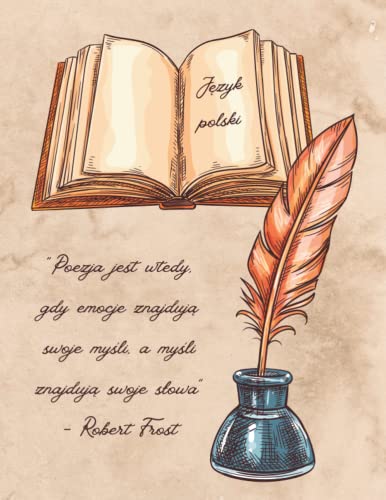 Język
polski
"Poezja jest wtedy,
gdy emocje znajdują
swoje myśli, a myśli
znajdują swoje słowa"
- Robert Frost